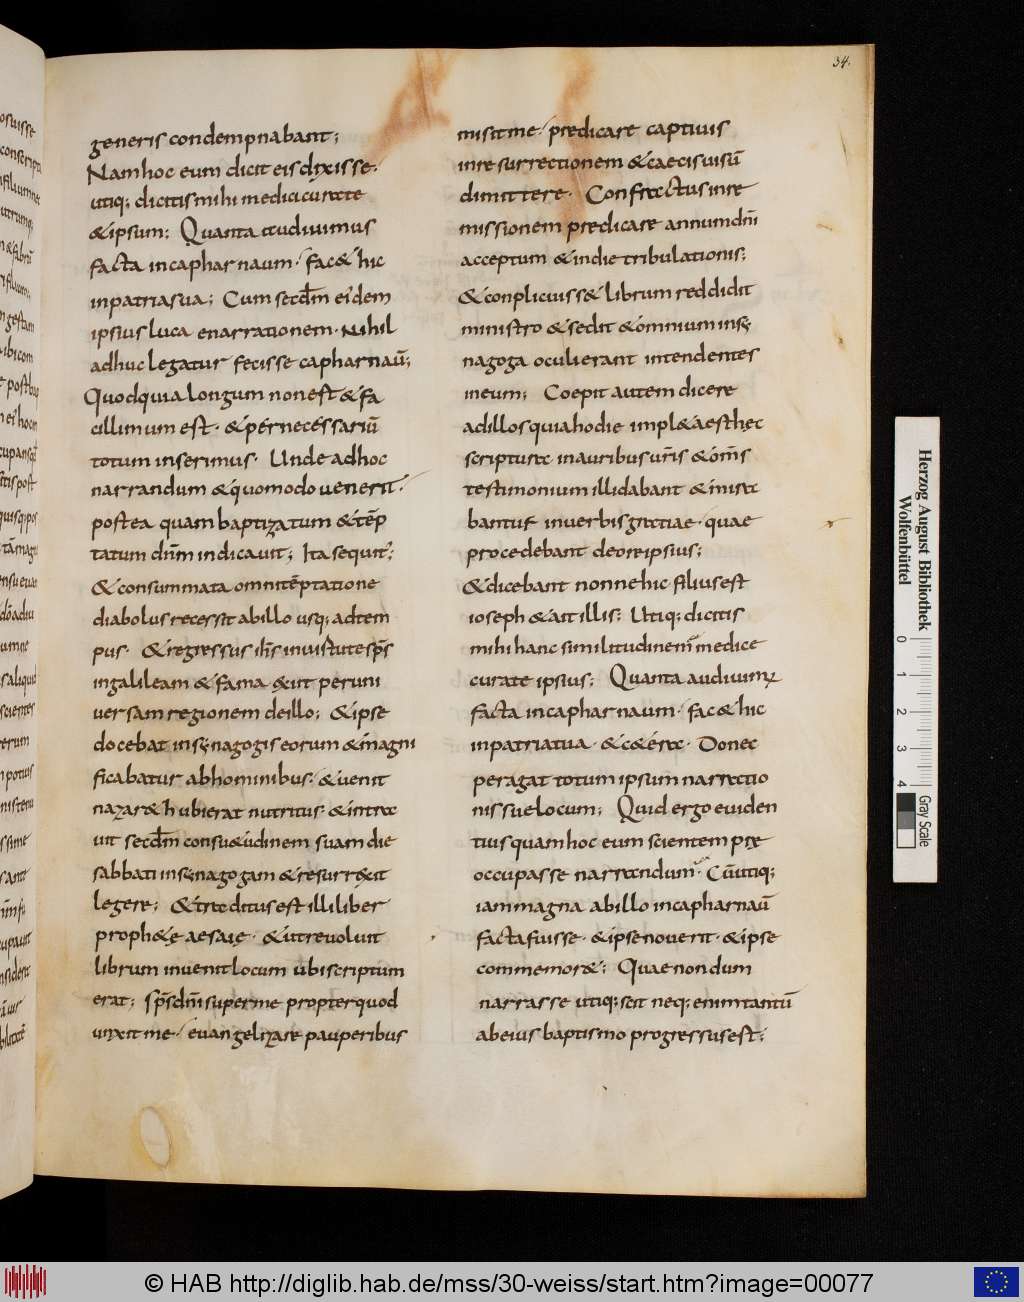 34.
generis condempnabant;
Nam hoc eum dicit eis dixisse·
utiq; dicitis mihi medici curate
& ipsum; Quanta audiuimus
facta in capharnaum· fac & hic
in patria sua; Cum secdm eidem
ipsius luca enarrationem· Nihil
adhuc legatur fecisse capharnaū;
Quod quia longum non est & fa
cillimum est· & pernecessariū
totum inserimus· Unde ad hoc
narrandum & quomodo uenerit·
postea quam baptizatum & tēp
tatum dnm indicauit; Ita sequit;
& consummata omni tēptatione
diabolus recessit ab illo usq; ad tem
pus· & regressus ihs in uirtute sps
in galileam & fama exiit per uni
uersam regionem de illo; & ipse
docebat in synagogis eorum & magni
ficabatur ab hominibus· & uenit
nazar&h ubi erat nutritus· & intra
uit secdm consu&udinem suam die
sabbati in synagogam & resurrexit
legere; & traditus est illi liber
proph&ę aesaię· & ut reuoluit
librum inuenit locum ubi scriptum
erat; sps dni super me propter quod
unxit me· euangelizare pauperibus
misit me· predicare captiuis
in resurrectionem & caecis uisū
dimittere· Confractus in re
missionem predicare annum dni
acceptum & in die tribulationis;
& conplicuiss& librum reddidit
ministro & sedit & omnium in sy
nagoga oculi erant intendentes
in eum; Coepit autem dicere
ad illos quia hodie impl&a est hęc
scriptura in auribus uris & oms
testimonium illi dabant & mira
bantur in uerbis gratiae· quae
procedebant de ore ipsius;
& dicebant nonne hic filius est
ioseph & ait illis; Utiq; dicitis
mihi hanc similitudinem medice
curate ipsius; Quanta audiuim;
facta in capharnaum· fac & hic
in patria tua· & c&era· Donec
peragat totum ipsum narratio
nis sue locum; Quid ergo euiden
tius quam hoc eum scientem prę
occupasse narrandum· Cū utiq;
iam magna ab illo in capharnaū
facta fuisse· & ipse nouerit· & ipse
commemor&; Quae nondum
narrasse utiq; scit neq; enim tantū
ab eius baptismo progressus est;
Herzog August Bibliothek
Wolfenbüttel
0 1 2 3 4
Gray Scale
© HAB http://diglib.hab.de/mss/30-weiss/start.htm?image=00077